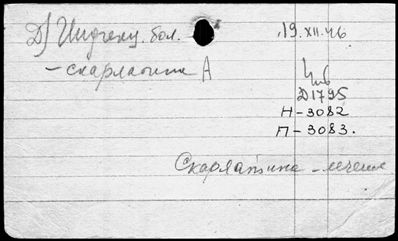 Д) Инфекц. бол. 19.XII.46
– скарлатина А
Инв
Д1795
Н–3082
П–3083.
Скарлатина – лечение